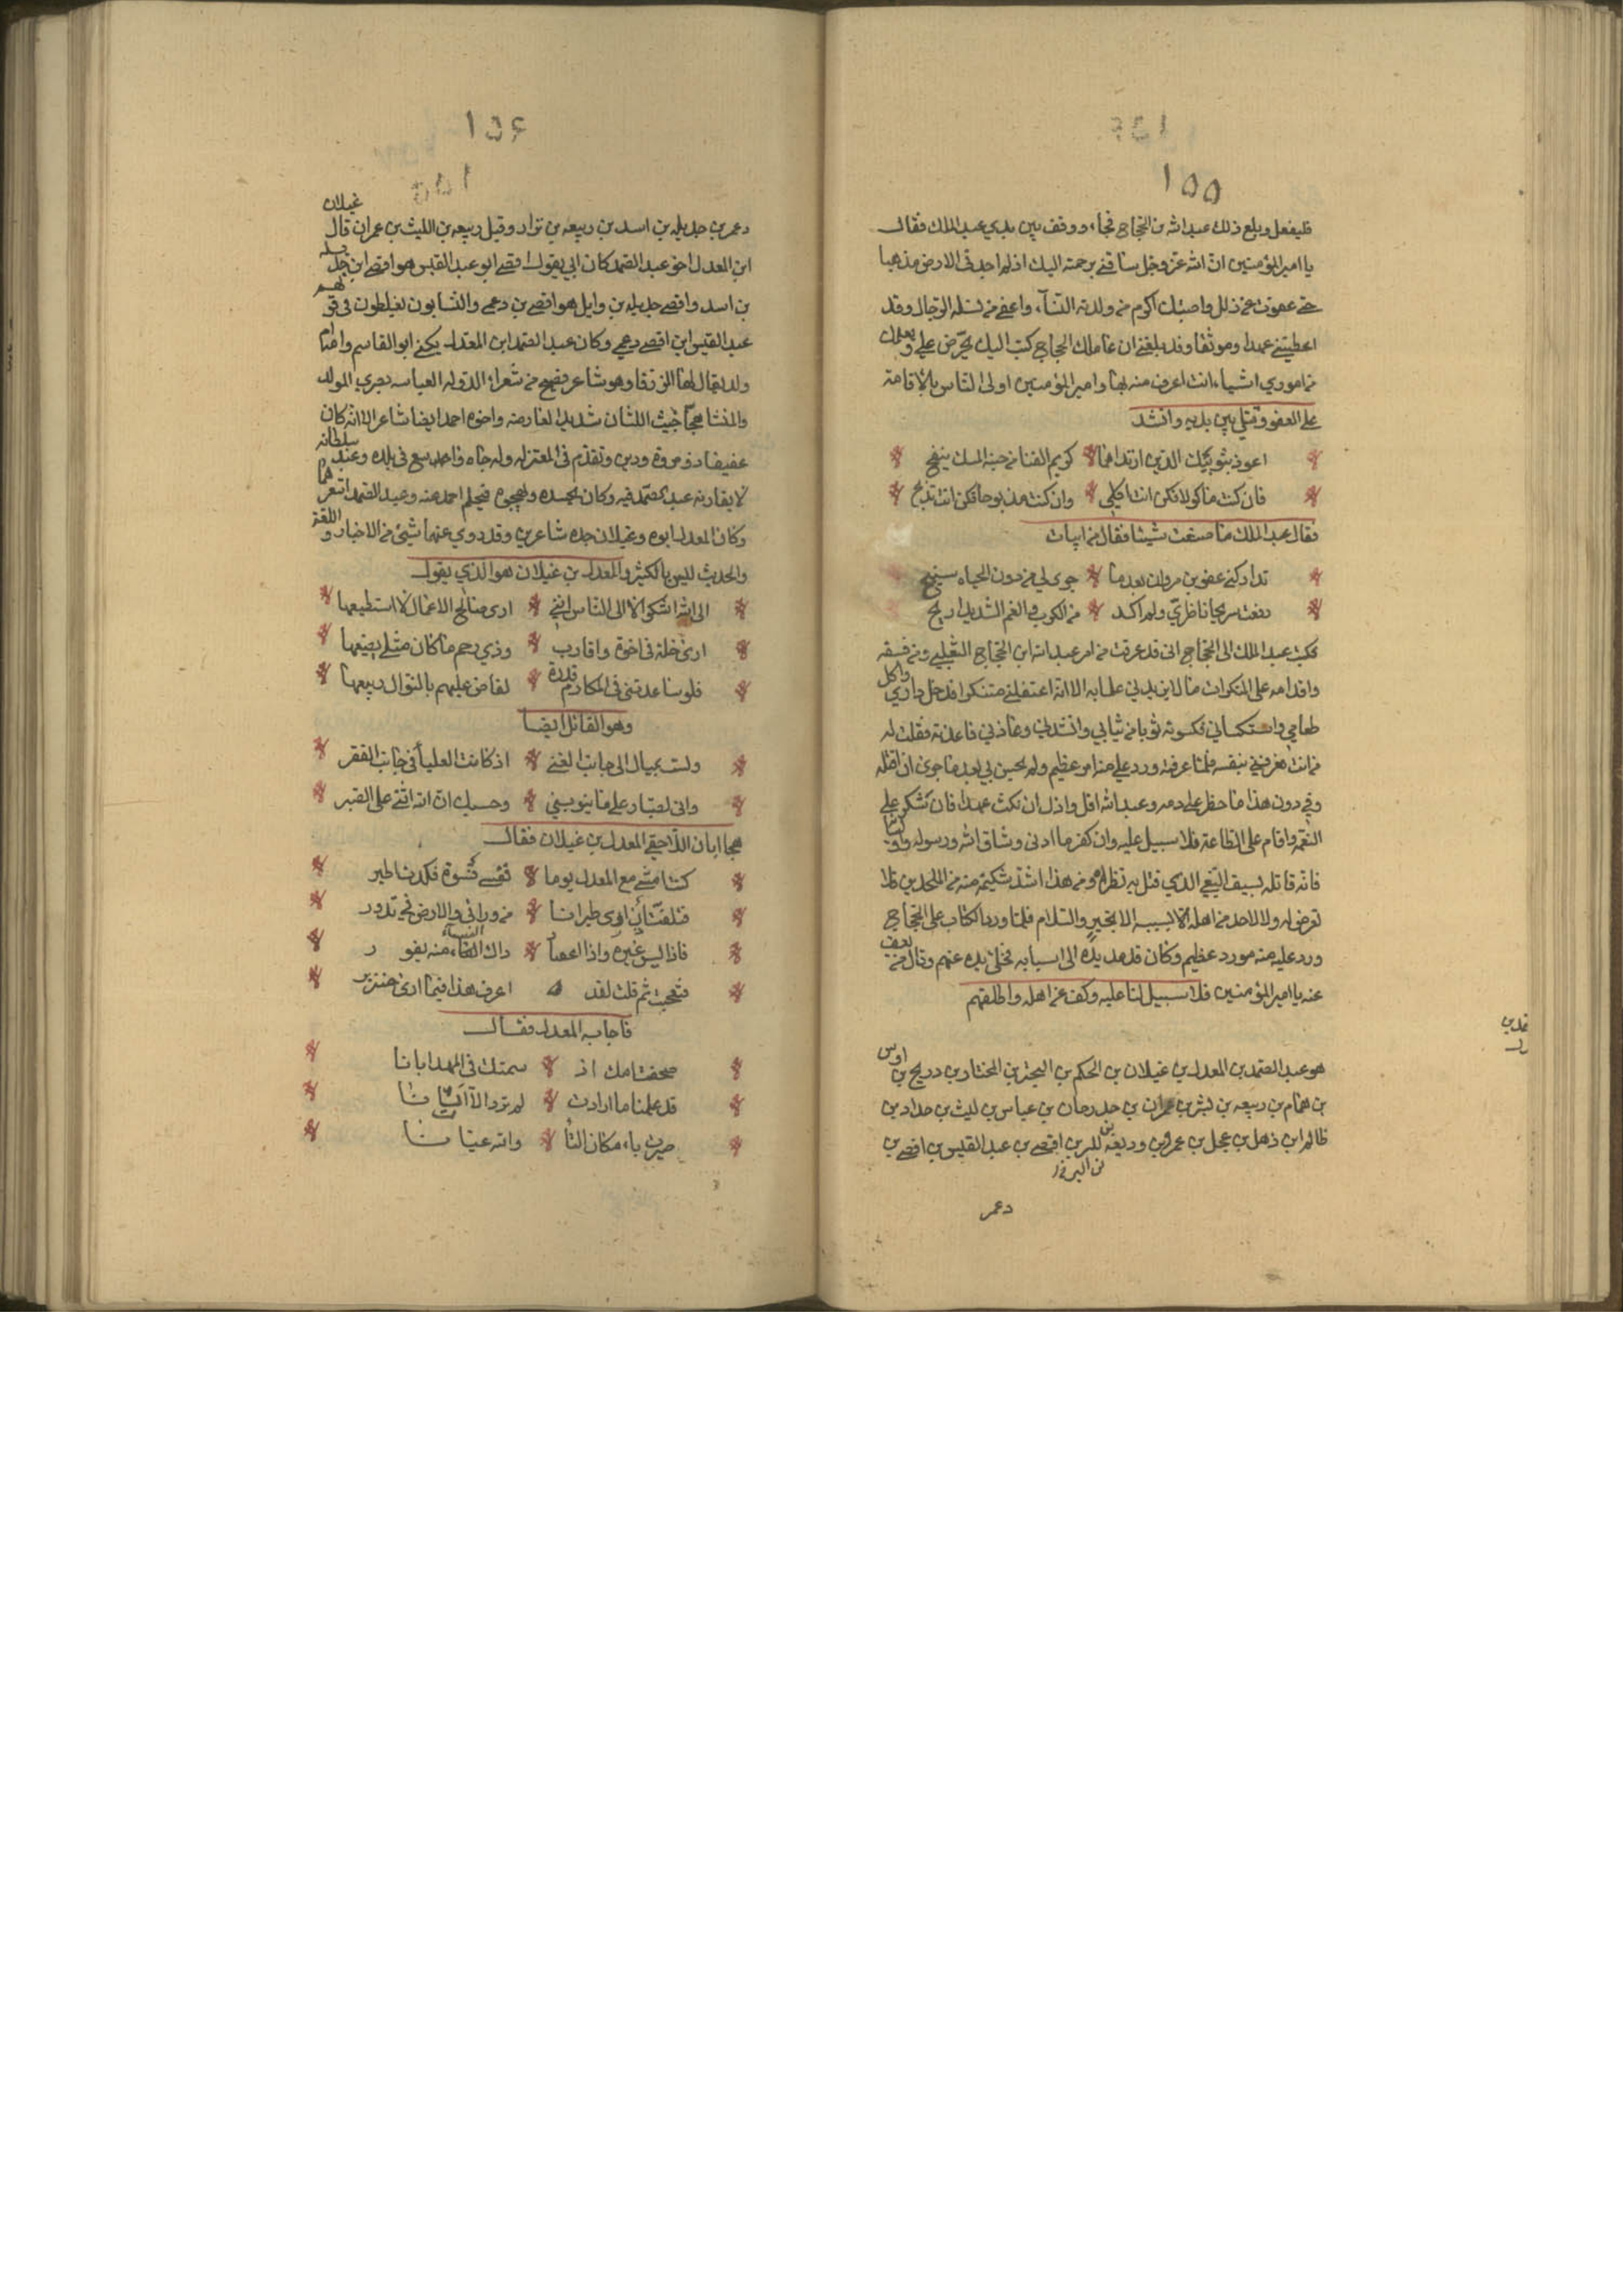 ١٥٥
فليفعل وبلغ ذلك عبد الله بن الحجاج فجاء ووقف بين يدي عبد الملك فقال
يا امير المؤمنين ان الله عز وجل ساقني برحمته اليك اذ لم اجد في الارض مذهبا
عفوت عن واصبتك اكرم من ولدته النساء واعفى من نسله الرجال وقد
اعطيتني عهدا وموثقا وقد بلغني ان عاملك الحجاج كتب اليك يحرض علي ويعلمك
من اموري اشياء انت اعرف منه بها وامير المؤمنين اولى الناس بالاقامة
على العفو ومثل بين يديه وانشد
اعوذ بثوبيك الذين ارتداهما كريم الثنا من جيبه المسك ينفح
فان كنت ماكولا فكن انت اكلي وان كنت مذبوحا فكن انت تذبح
فقال عبد الملك ما صنعت شيئا فقال من ابيات
تداركني عفو بن مروان بعد ما جرى لي من دون الحياه سنيح
رفعت مريحا ناظري ولم اكد من الكرب والغم الشديد اريح
فكتب عبد الملك الى الحجاج اني قد عرفت من امر عبد الله ابن الحجاج الثعلبي ومن فسقه
واقدامه على المنكرات ما لا يزيدني علما به الا انه اغتفلني متنكرا فدخل داري واكل
طعامي واستكساني فكسوته ثوبا من ثيابي وانشدني وعاذني فاعذته فقلت له
من انت فعرفني بنفسه فلما عرفته ورد علي منه امر عظيم ولم يحسن بي بعد ما جرى ان اقتله
وفي دون هذا ما حظر علي دمه وعبد الله اقل واذل ان نكث عهدا فان شكر على
النعمة واقام على الطاعة فلا سبيل عليه وان كفر ما ادنى وشاق الله ورسوله واولياه
فانه قاتله بسيف البغي الذي قتل به نظراه ومن هذا اشد شكيمة منه من الملحدين فلا
تعرض له ولا لاحد من اهله الا بسببه الا بخير والسلام فلما ورد الكتاب على الحجاج
ورد عليه منه مورد عظيم وكان قد مد يده الى اسبابه فخلى يده عنهم وقال من يعف
عنه يا امير المؤمنين فلا سبيل لنا عليه وكف عن اهله واطلقهم
هو عبد الصمد بن المعدل بن غيلان بن الحكم بن البحتر بن المختار بن دريح بن اوس
بن همام بن ربيعه بن بشر بن عمران بن حدرجان بن عباس بن ليث بن حداد بن
ظالم ابن ذهل بن عجل بن عمرو بن وديعه بن افصى بن عبد القيس بن افصى بن
دعمر
١٥٦
دعمر بن جديله بن اسد بن ربيعه بن نزار وقيل ربيعه بن الليث بن عمران قال غيلان
ابن المعدل اخو عبد الصمد كان ابي يقول افصى ابو عبد القيس هو افصى ابن جديله
بن اسد وافصى جديله بن وايل هو افصى بن دعمى والنسابون يغلطون في قولهم
عبد القيس ابن افصى دعمى وكان عبد الصمد ابن المعدل يكنى ابو القاسم وامه ام
ولد يقال لها الزرقا وهو شاعر فصيح من شعراء الدوله العباسه بصري المولد
والمنشا هجا خبيث اللسان شديد العارضه واخوه احمد ايضا شاعر الا انه كان
عفيفا ذو مروة ودين وتقدم في المعتزله وله جاه واحد سع في بلده وعند سلطانه
لا يقاربه عبد الصمد فيه وكان يحسده ويهجوه فيحلم احمد عنه وعبد الصمد اشعرهما
وكان المعدل ابوه وغيلان جده شاعرين وقد روي عنهما شيئ من الاخبار واللغة
والحديث ليس بالكثير والمعدل بن غيلان هو الذي يقول
الى الله اشكو لا الى الناس انني ارى صالح الاعمال لا استطيعها
ارى خلة في اخوة واقارب وذي رحم ما كان مثلي يضيعها
فلو ساعدتني في المكارم قدرة لفاض عليهم بالنوال ربيعها
وهو القائل ايضا
ولست بميال الى جانب الغنى اذ كانت العليا في جانب الفقر
واني لصبار على ما ينوبني وحسبك ان الله اثنى على الصبر
هجا ابان اللاحقي المعدل بن غيلان فقال
كنت امشي مع المعدل يوما ففسى فسوة فكدت اطير
فتلفت اين اوى طيرانا من وراني والارض في تدور
فاذا ليس غيره واذا اعصا ذاك الفساء منه يفور
فتعجبت ثم قلت لقد اعرف هذا فيما ارى خنزير
فاجابه المعدل فقال
صحفت امك اذ سمتك في المهد ابانا
قد علمنا ما ارادت لم ترد الا اتانا
صيرت باء مكان التاء والله عيانا